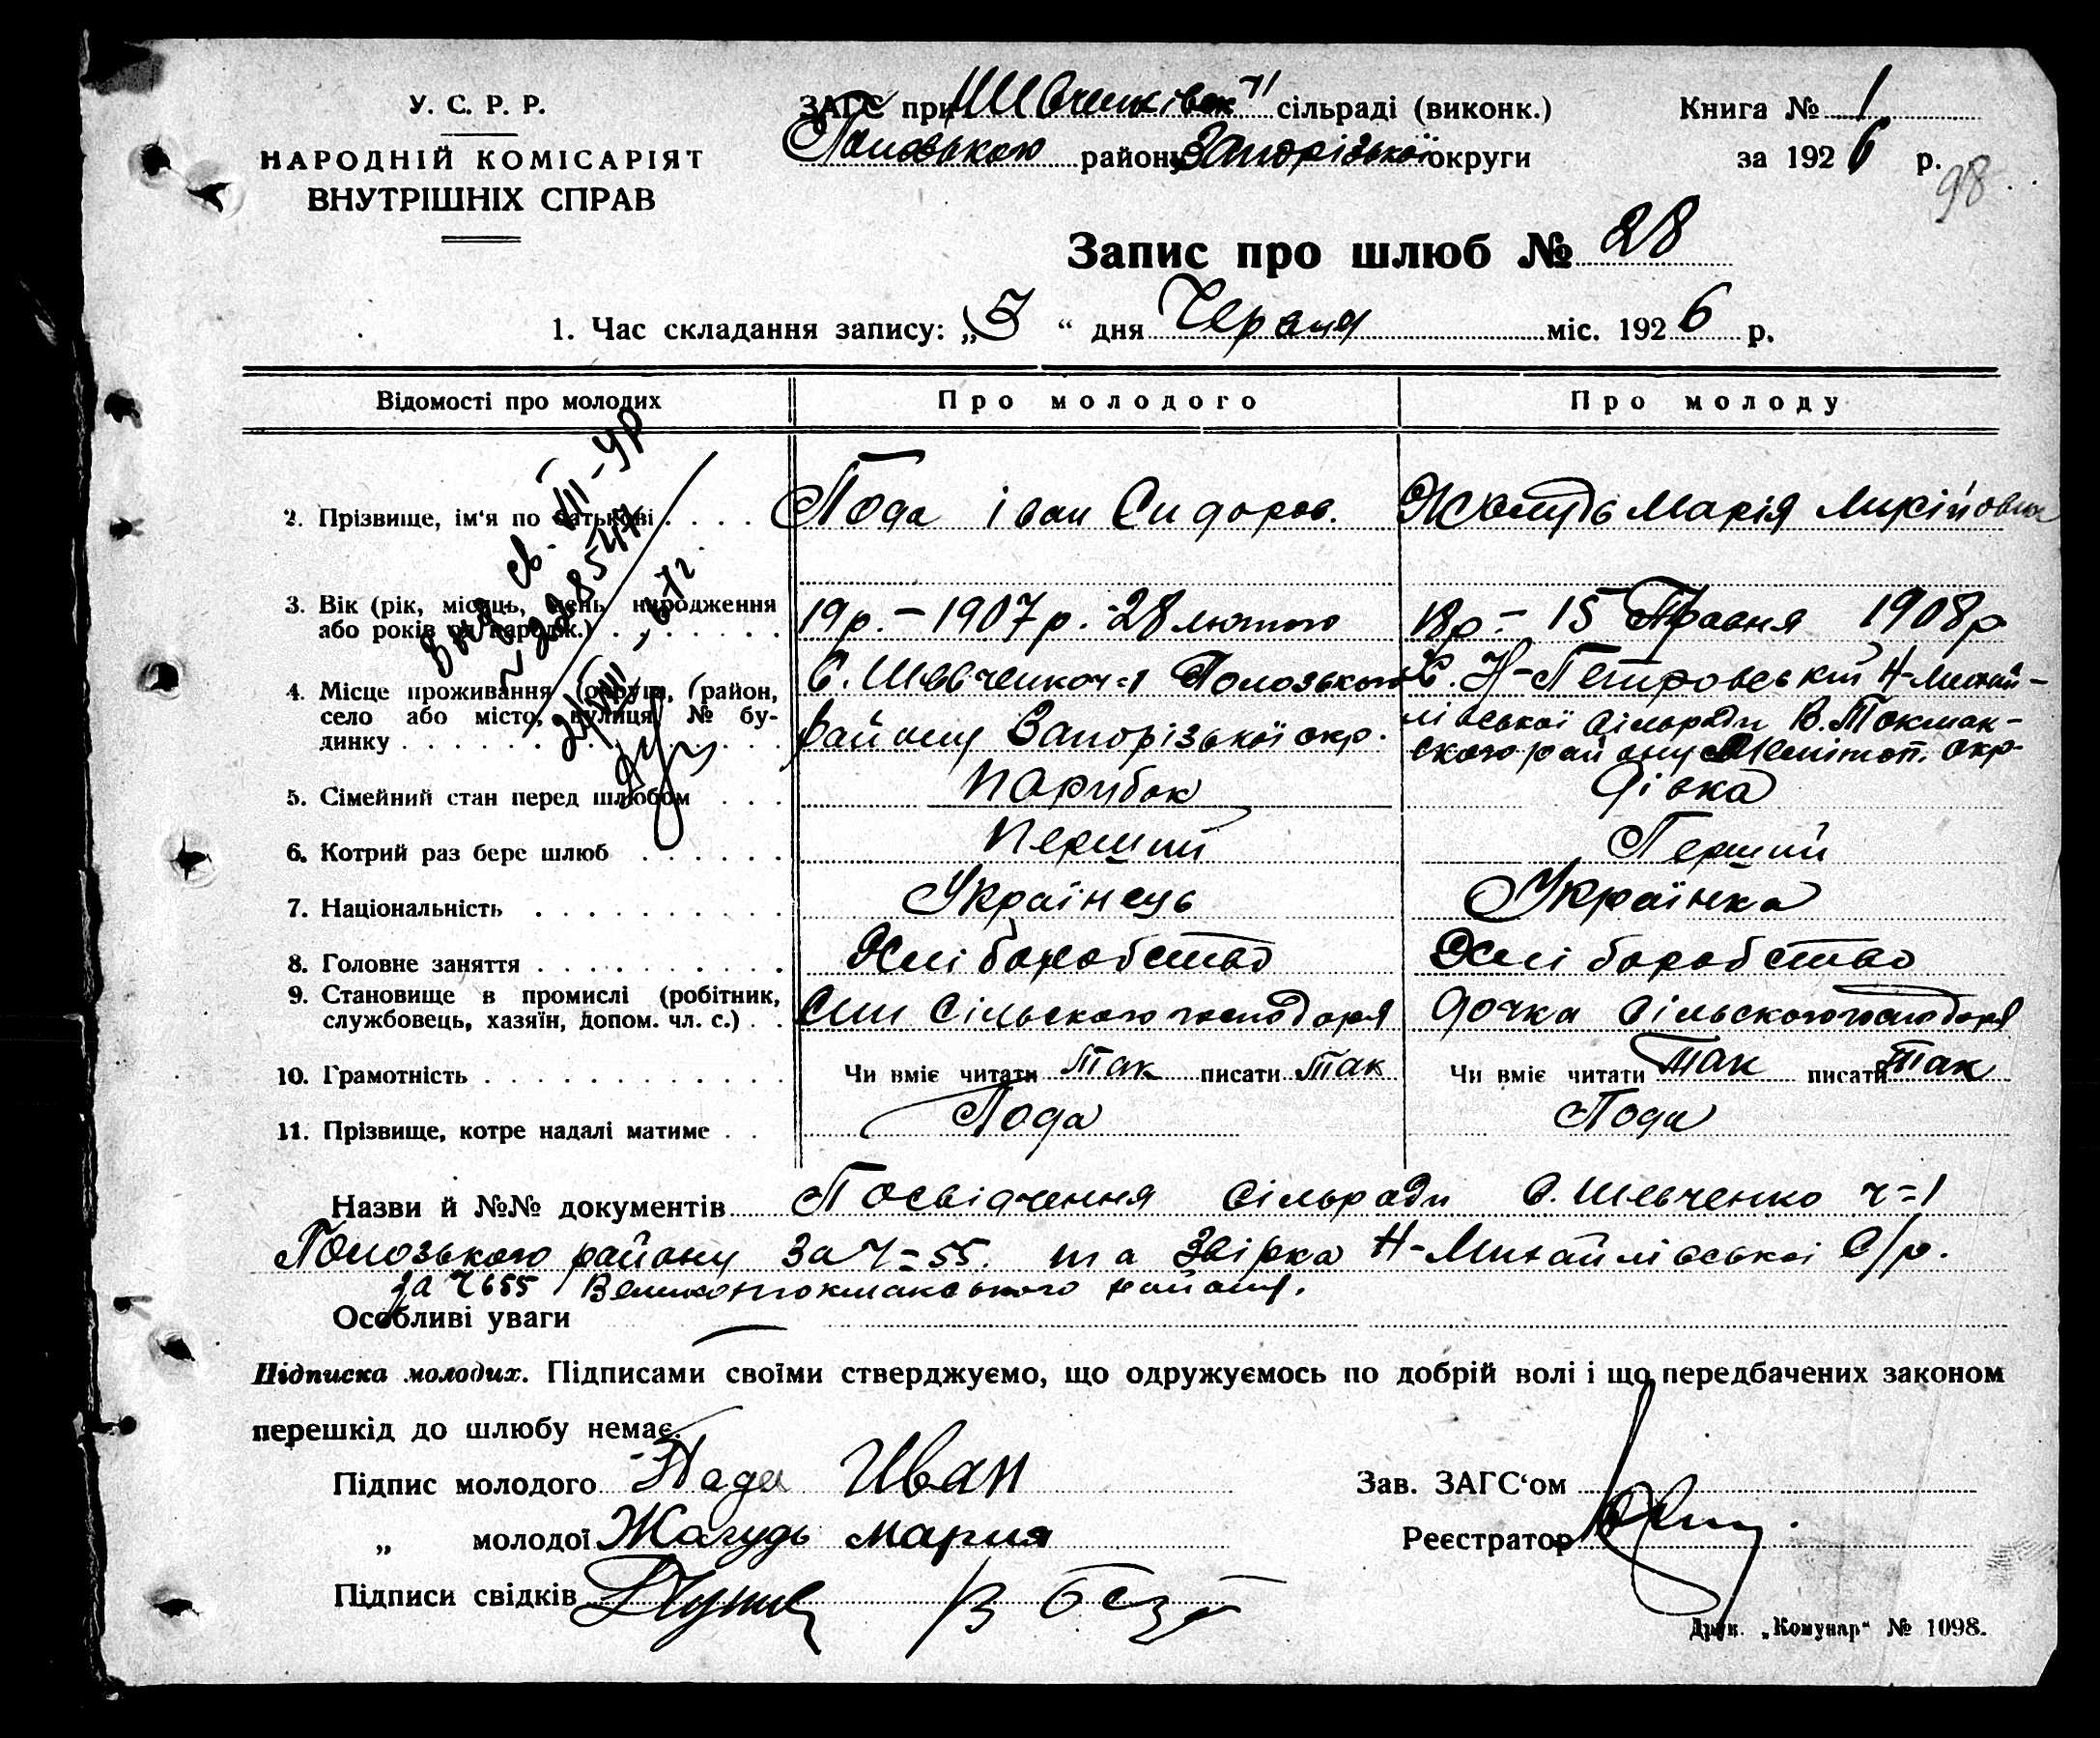 У. С. Р. Р.
НАРОДНІЙ КОМІСАРІЯТ
ВНУТРІШНІХ СПРАВ
ЗАГС при Шевченківськ. ч1 сільраді (виконк.)
району Запорізької округи
Книга № 1
за 1926 р.
98
Запис про шлюб № 28
1. Час складання запису: „5“ дня Червня міс. 1926 р.
Відомості про молодих
Про молодого
Про молоду
2. Прізвище, ім'я по батькові
Пода Іван Сидоров.
Жолудь Марія Микійовна
3. Вік (рік, місяць, день народження
або років од народж.)
19 р. – 1907 р. - 28 лютого
18 р. – 15 Травня 1908 р
4. Місце проживання (округа, район,
село або місто, вулиця № бу-
динку
С. Шевченко ч=1 Полозького
району Запорізької окр.
Х. Н-Петровський Н-Михай-
лівської сільради В.Токмак-
ского району Меліт оп. окр.
5. Сімейний стан перед шлюбом
Парубок
Дівка
6. Котрий раз бере шлюб
Перший
Перший
7. Національність
Українець
Українка
8. Головне заняття
Хліборобство
Хліборобство
9. Становище в промислі (робітник,
службовець, хазяїн, допом. чл. с.)
Син Сільского господоря
Дочка Сільского господоря
10. Грамотність
Чи вміє читати Так писати Так
Чи вміє читати Так писати Так
11. Прізвище, котре надалі матиме
Пода
Пода
Назви й №№ документів Посвідчення сільради С. Шевченко ч=1
Полозького району за ч=55. та Звірка Н-Михайлівської С/р.
за ч 655 Великотокмакського району.
Особливі уваги
Підписка молодих. Підписами своїми стверджуємо, що одружуємось по добрій волі і що передбачених законом
перешкід до шлюбу немає.
Підпис молодого Пода Иван
„ молодої Жолудь Мария
Підписи свідків
Зав. ЗАГС'ом
Реєстратор
Друк. „Комунар“ № 1098.